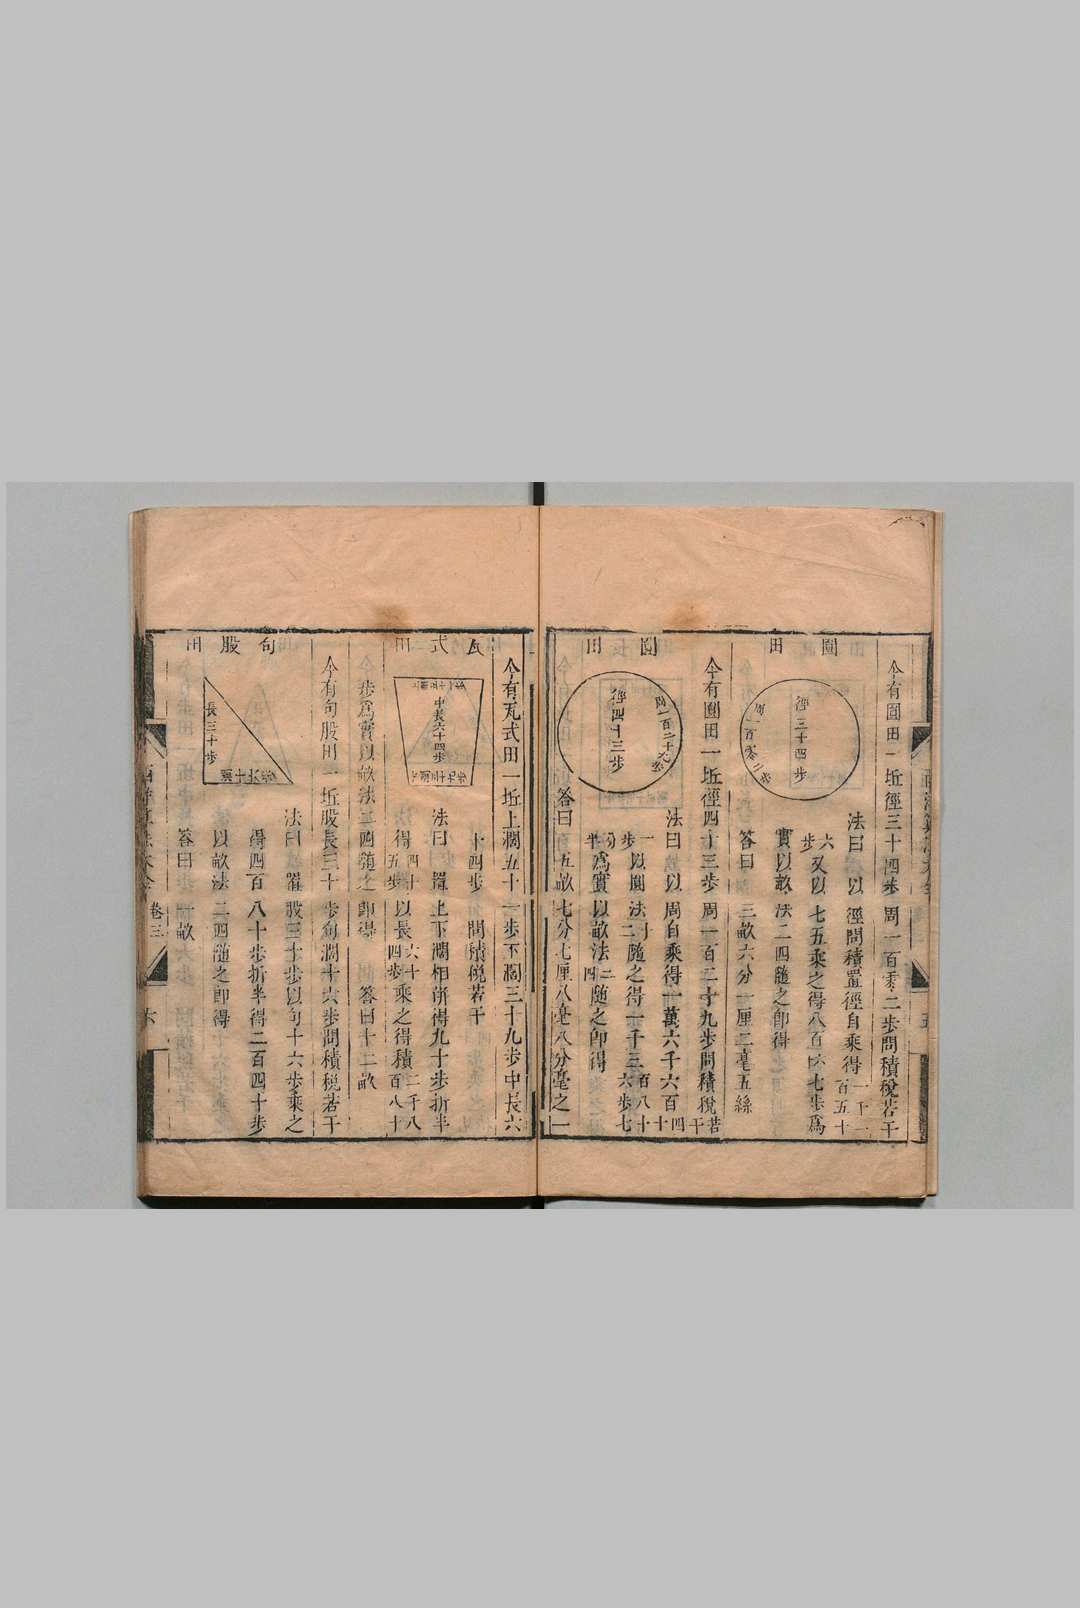 圓田
今有圓田一坵徑三十四步周一百零二步問積稅若干
徑三十四步
周一百零二步
法曰以徑問積置徑自乘得一千一百五十
六步又以七五乘之得八百六十七步爲
實以畝法二四隨之即得
答曰三畝六分一厘二毫五絲
圓田
今有圓田一坵徑四十三步周一百二十九步問積稅若干
徑四十三步
周一百二十九步
法曰以周自乘得一萬六千六百四十
一步以圓法十二隨之得一千三百八十六步七
分半爲實以畝法二四隨之即得
答曰五畝七分七厘八毫八分毫之一
瓦式田
今有瓦式田一坵上濶五十一步下濶三十九步中長六
十四步問積稅若干
中長六十四步
法曰置上下濶相併得九十步折半
得四十五步以長六十四步乘之得積二千八百八十
步爲實以畝法二四隨之即得 答曰十二畝
句股田
今有句股田一坵股長三十步句濶十六步問積稅若干
長三十步
法曰置股三十步以句十六步乘之
得四百八十步折半得二百四十步
以畝法二四隨之即得
答曰一畝
卷三
六